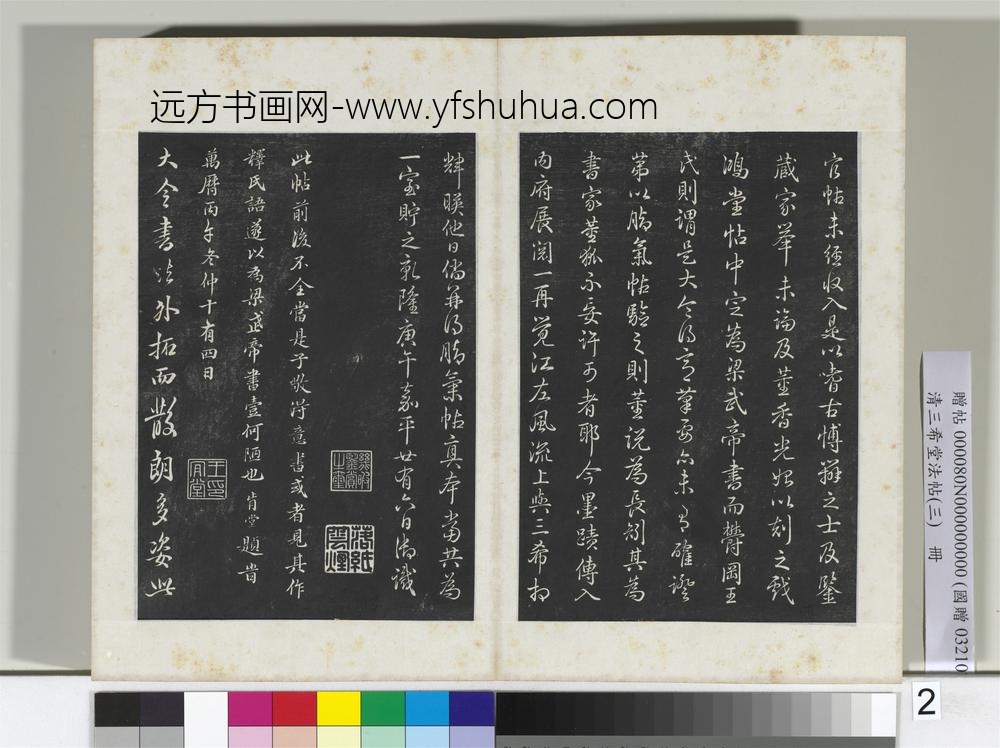 远方书画网-www.yfshuhua.com
官帖未經收入是以嗜古博辯之士及鑒
藏家舉未論及董香光始以刻之戲
鴻堂帖中定為梁武帝書而鬱岡王
氏則謂是大令得意筆要亦未有確證
第以腦氣帖驗之則董說為長矧其為
書家董狐不妄許可者耶今墨蹟傳入
內府展閱一再覺江左風流上與三希相
輝暎他日倘并得腦氣帖真本當共為
一室貯之乾隆庚午嘉平廿有六日御識
此帖前後不全當是子敬得意書或者見其作
釋氏語遂以為梁武帝書壹何陋也肯堂題旹
萬曆丙午冬仲十有四日
王肯堂印
大令書法外拓而散朗多姿此
贈帖 000080N000000000 (國贈 03210
清三希堂法帖(三) 冊
2